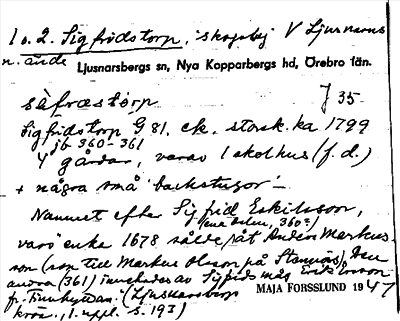 1 o. 2. Sigfridstorp, skogsbj V Ljusnarns
n. ände
Ljusnarsbergs sn, Nya Kopparbergs hd, Örebro län.
säfrastorp J 35-
Sigfridstorp G 81. ek. storsk. ka 1799
jb 360-361
4 gårdar, varav 1 skolhus (f. d.)
+ några små backstugor -
Namnet efter Sigfrid Eskilsson,
(ena delen, 360?)
vars enka 1678 sålde åt Anders Markus-
son (son till Markus Olsson på Stennäs). Den
andra (361) innehades av Sigfrids måg Erik Larsson
fr. Finnhyttan. (Ljusnarsberg
krön., 1. uppl. s. 193)
MAJA FORSSLUND 1947